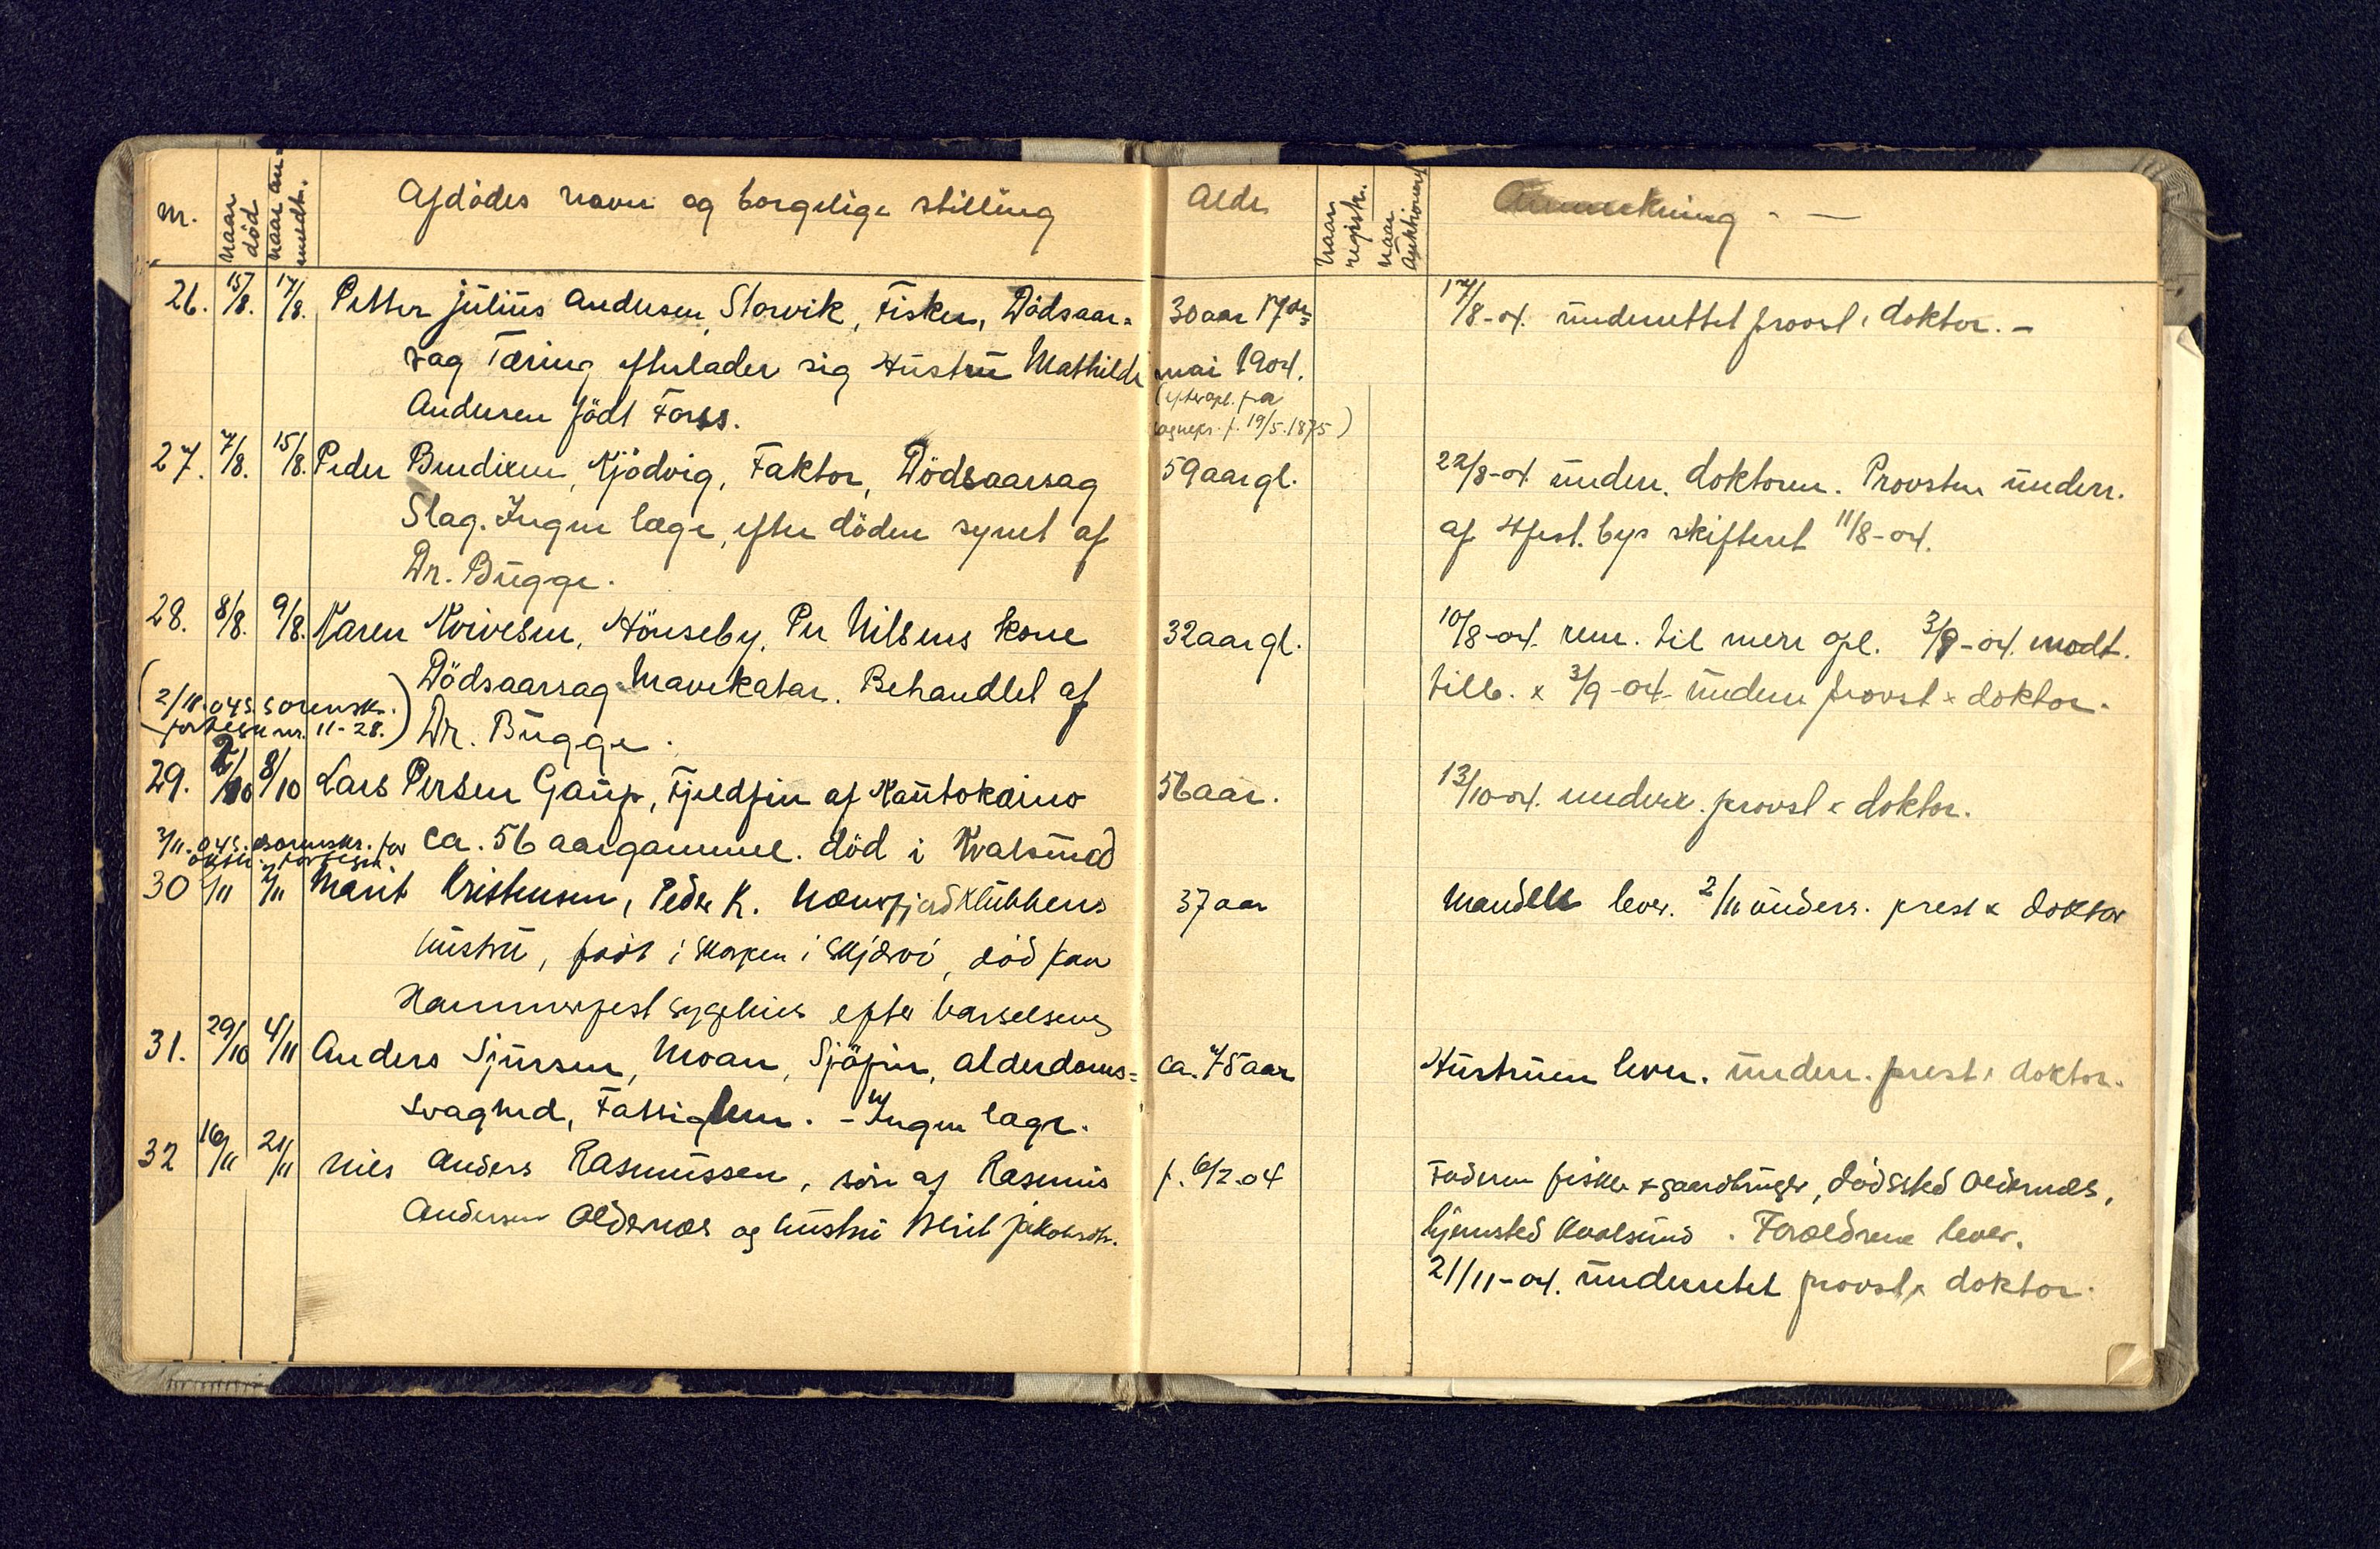 nr.
naar død
naar anmeldt.
Afdödes navn og borgelige stilling
Alde
naar registr.
naar
Anmerkning - —
26. 15/8. 17/8. Petter Julius Andersen, Storvik, Fisker, Dödsaar= 30 aar 17de 17/8-04. underrettet provst, doktor. -
sag Tæring efterlader sig Hustru Mathilde mai 1904.
Andersen födt Forss. (efter opl. fra
f. 19/5.1875)
27. 7/8. 15/8. Peder Bendixen, Kjödvig, Faktor, Dödsaarsag 59 aar gl. 22/8-04 underr. doktoren. Provsten underr.
Slag. Ingen læge, efter döden synet af af Hfest. bys skifteret 11/8-04.
Dr. Bugge.
28. 8/8. 9/8. Karen Kvivesen, Hönseby, Per Nilsens kone 32 aar gl. 10/8-04. rem. til mere opl. 3/9-04. modt.
Dödsaarsag Mavekatar. Behandlet af tilb. & 3/9-04 underr provst & doktor.
(2/11.04 s. sorensk.
fortegn nr. 11-28.) Dr. Bugge.
29. 2/10 8/10 Lars Persen Gaup, Fjeldfin af Kautokeino 56 aar. 13/10-04. underr. provst & doktor.
2/11.04 s. sorenskr. for
oktbr. fortegn ca. 56 aar gammel. död i Kvalsund
30 1/11 2/11 Marit Kristensen, Peder K. Næverfjord Klubbens 37 aar Manden lever. 2/11 underr. prest & doktor
hustru, född i Skorpen i Skjærvö, död paa
Hammerfest sygehus efter barselseng
31. 29/10 4/11 Anders Sjursen, Moan, Sjöfin, alderdoms= ca. 75 aar Hustruen lever. underr. prest, doktor.
svaghed, Fattiglem. - Ingen læge.
32 16/11 21/11 Nils Anders Rasmussen, sön af Rasmus f. 6/2.04 Faderen fisker & gaardbruger, dödssted Oldernes,
Andersen Oldernes og hustru Berit Jakobsdtr. hjemsted Kvalsund. Forældrene lever.
21/11-04. underrettet provst & doktor.